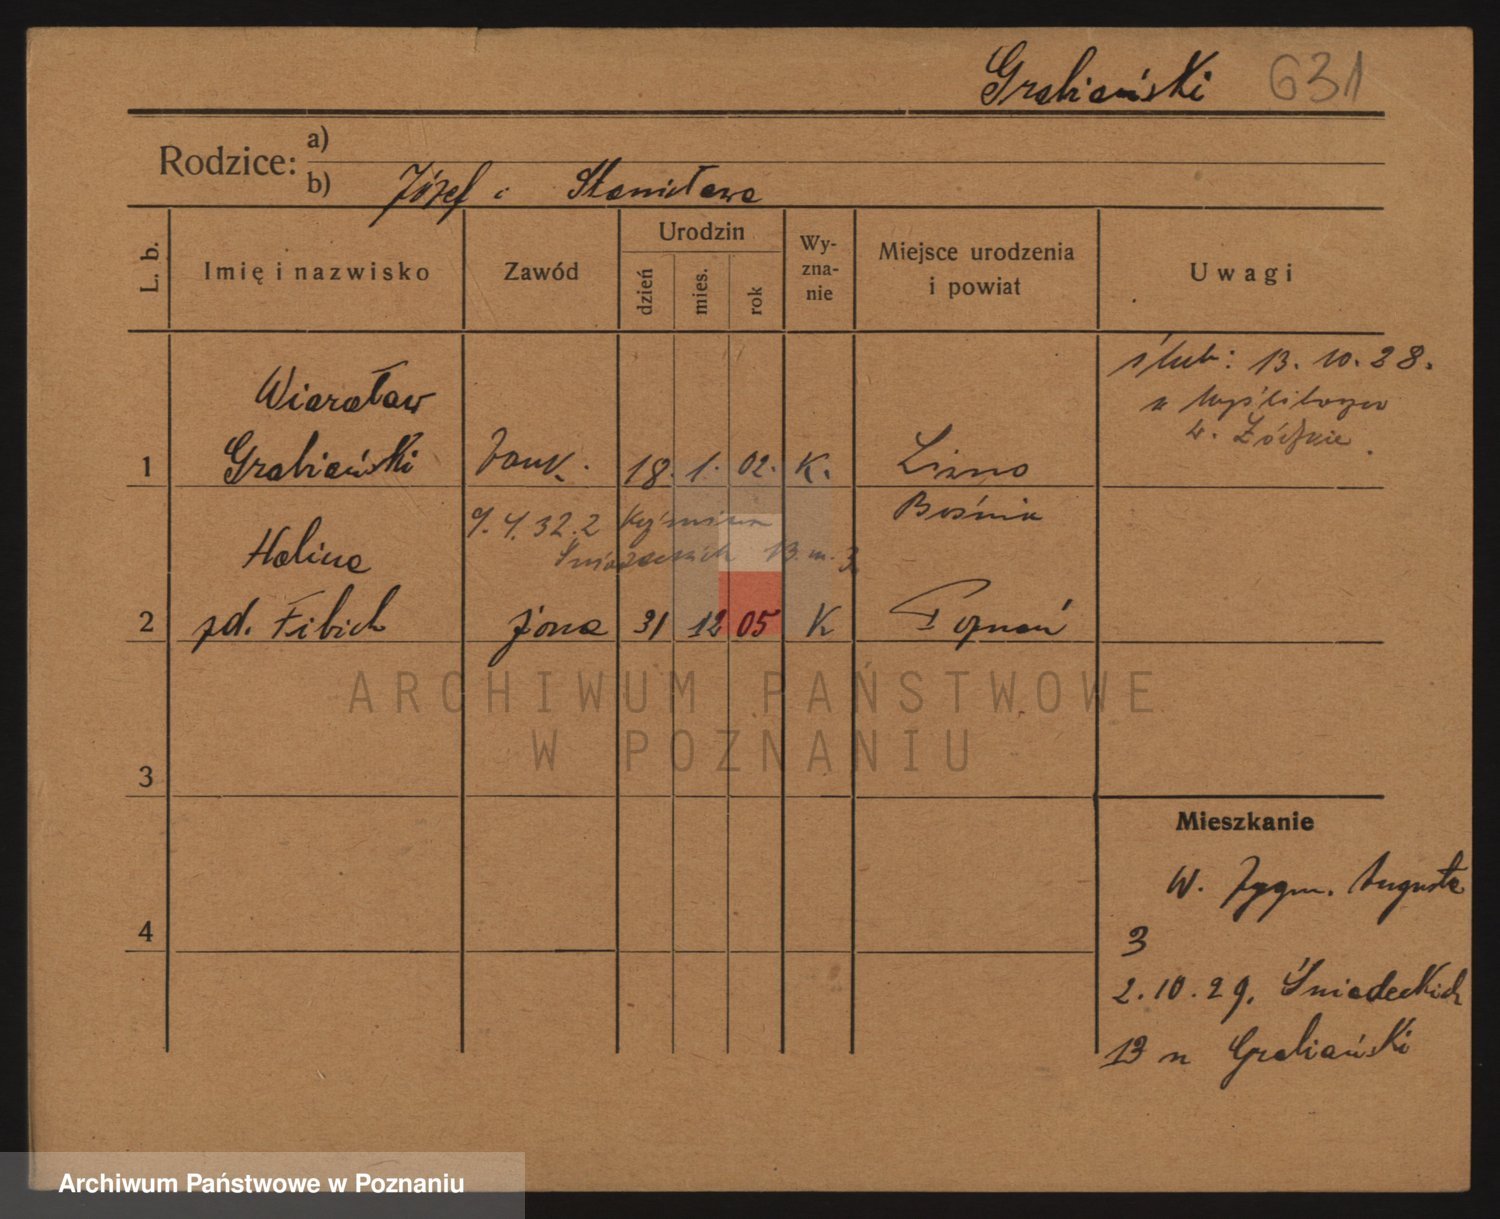 Grabiański 631
Rodzice: a)
b) Józef i Stanisława
L. b.
Imię i nazwisko
Zawód
Urodzin
dzień
mies.
rok
Wy-
zna-
nie
Miejsce urodzenia
i powiat
Uwagi
ślub: 13. 10. 28.
Wiarosław
1 Grabiański 18. 1. 02. K. Lizno
Bośnia
9. 4. 32. z
Śniadeckich 13 m. 3
Halina
2 zd. Fibich żona 31 12 05 K Poznań
ARCHIWUM PAŃSTWOWE
W POZNANIU
3
4
Mieszkanie
W. Zygm. Augusta
3
2. 10. 29. Śniadeckich
13 n Grabiański
Archiwum Państwowe w Poznaniu